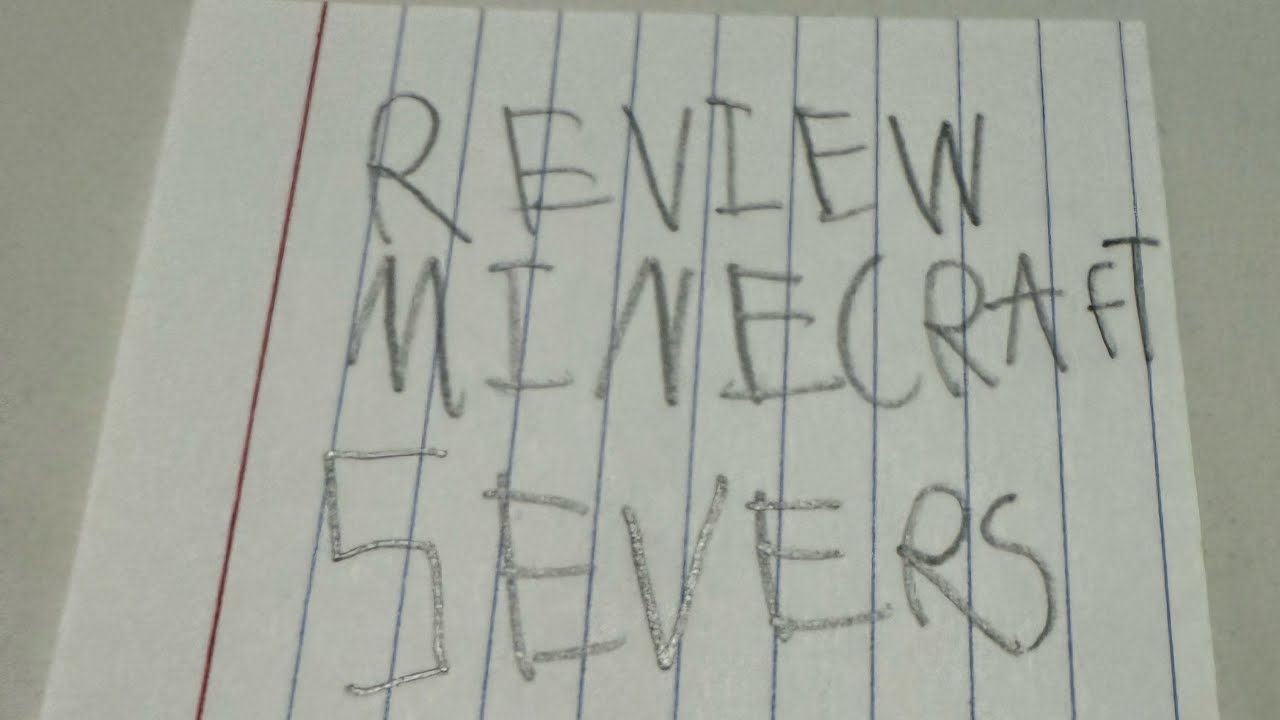 REVIEW
MINECRAFT
SEVERS